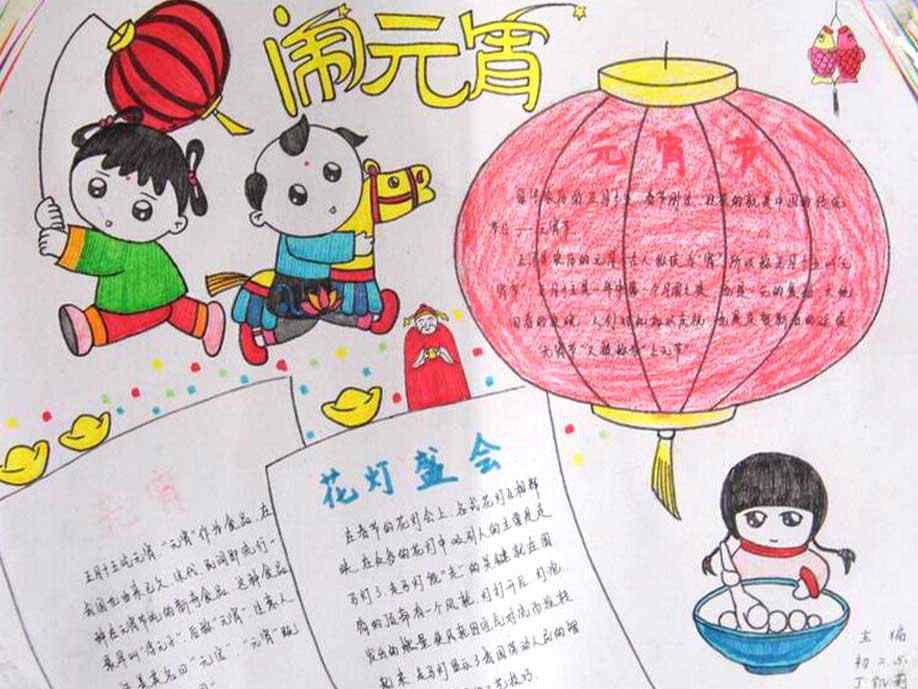 闹元宵
元宵节
每年农历的正月十五，春节刚过，迎来的就是中国的传统
节日——元宵节。
正月是农历的元月，古人称夜为“宵”所以称正月十五叫“元
宵节”。正月十五是一年中第一个月圆之夜，也是一元的复始，大地
回春的夜晚，人们对此加以庆祝，也是庆贺新春的延续
元宵节“又被称为“上元节”
元宵
正月十五吃元宵，“元宵”作为食品，在
我国也由来已久，宋代，民间即流行一
种在元宵节吃的新奇食品。这种食品
最早叫“浮元子”后称“元宵”生意人
还美其名曰“元宝”。“元宵”
花灯盛会
在春节的花灯会上，各式花灯五相辉
映，在众多的花灯中吸引人的主要是走
马灯了，走马灯能“走”的关键就在圆
筒的
有一个风轮，
灯打开后
产生对流而旋转
起来，走马灯显示了我国劳动人民的智
主编
初二